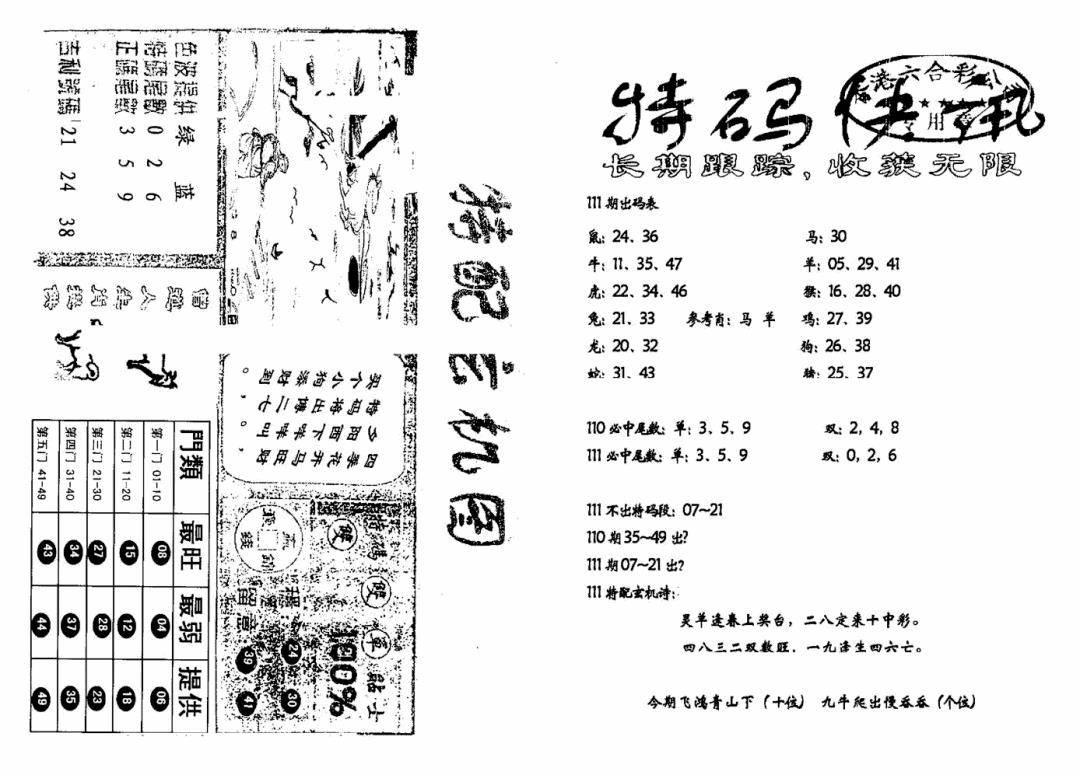 特码快讯
香港六合彩公
专用章
长期跟踪,收获无限
111期出码表
鼠: 24、36
马: 30
牛: 11、35、47
羊: 05、29、41
虎: 22、34、46
猴: 16、28、40
兔: 21、33
参考肖: 马 羊
鸡: 27、39
龙: 20、32
狗: 26、38
蛇: 31、43
猪: 25、37
110必中尾数: 单: 3、5、9
双: 2, 4, 8
111必中尾数: 单: 3、5、9
双: 0, 2, 6
111不出特码段: 07~21
110期35~49出?
111期07~21出?
111特配玄机诗:
灵羊逢春上奖台，二八定来十中彩。
四八三二双数旺，一九泽生四六亡。
今期飞鸿青山下（十位） 九牛爬出慢吞吞（个位）
特配玄机图
色波提供 绿 蓝
特码尾数 0 2 6
正码尾数 3 5 9
吉利号码 21 24 38
曾道人
四季花开马旺财，
特码
双
双
单
贴士
100%
留意:
24
30
39
41
門類 最旺 最弱 提供
第一门 01-10 08 04 06
第二门 11-20 15 12 18
第三门 21-30 27 28 23
第四门 31-40 34 37 35
第五门 41-49 43 44 49